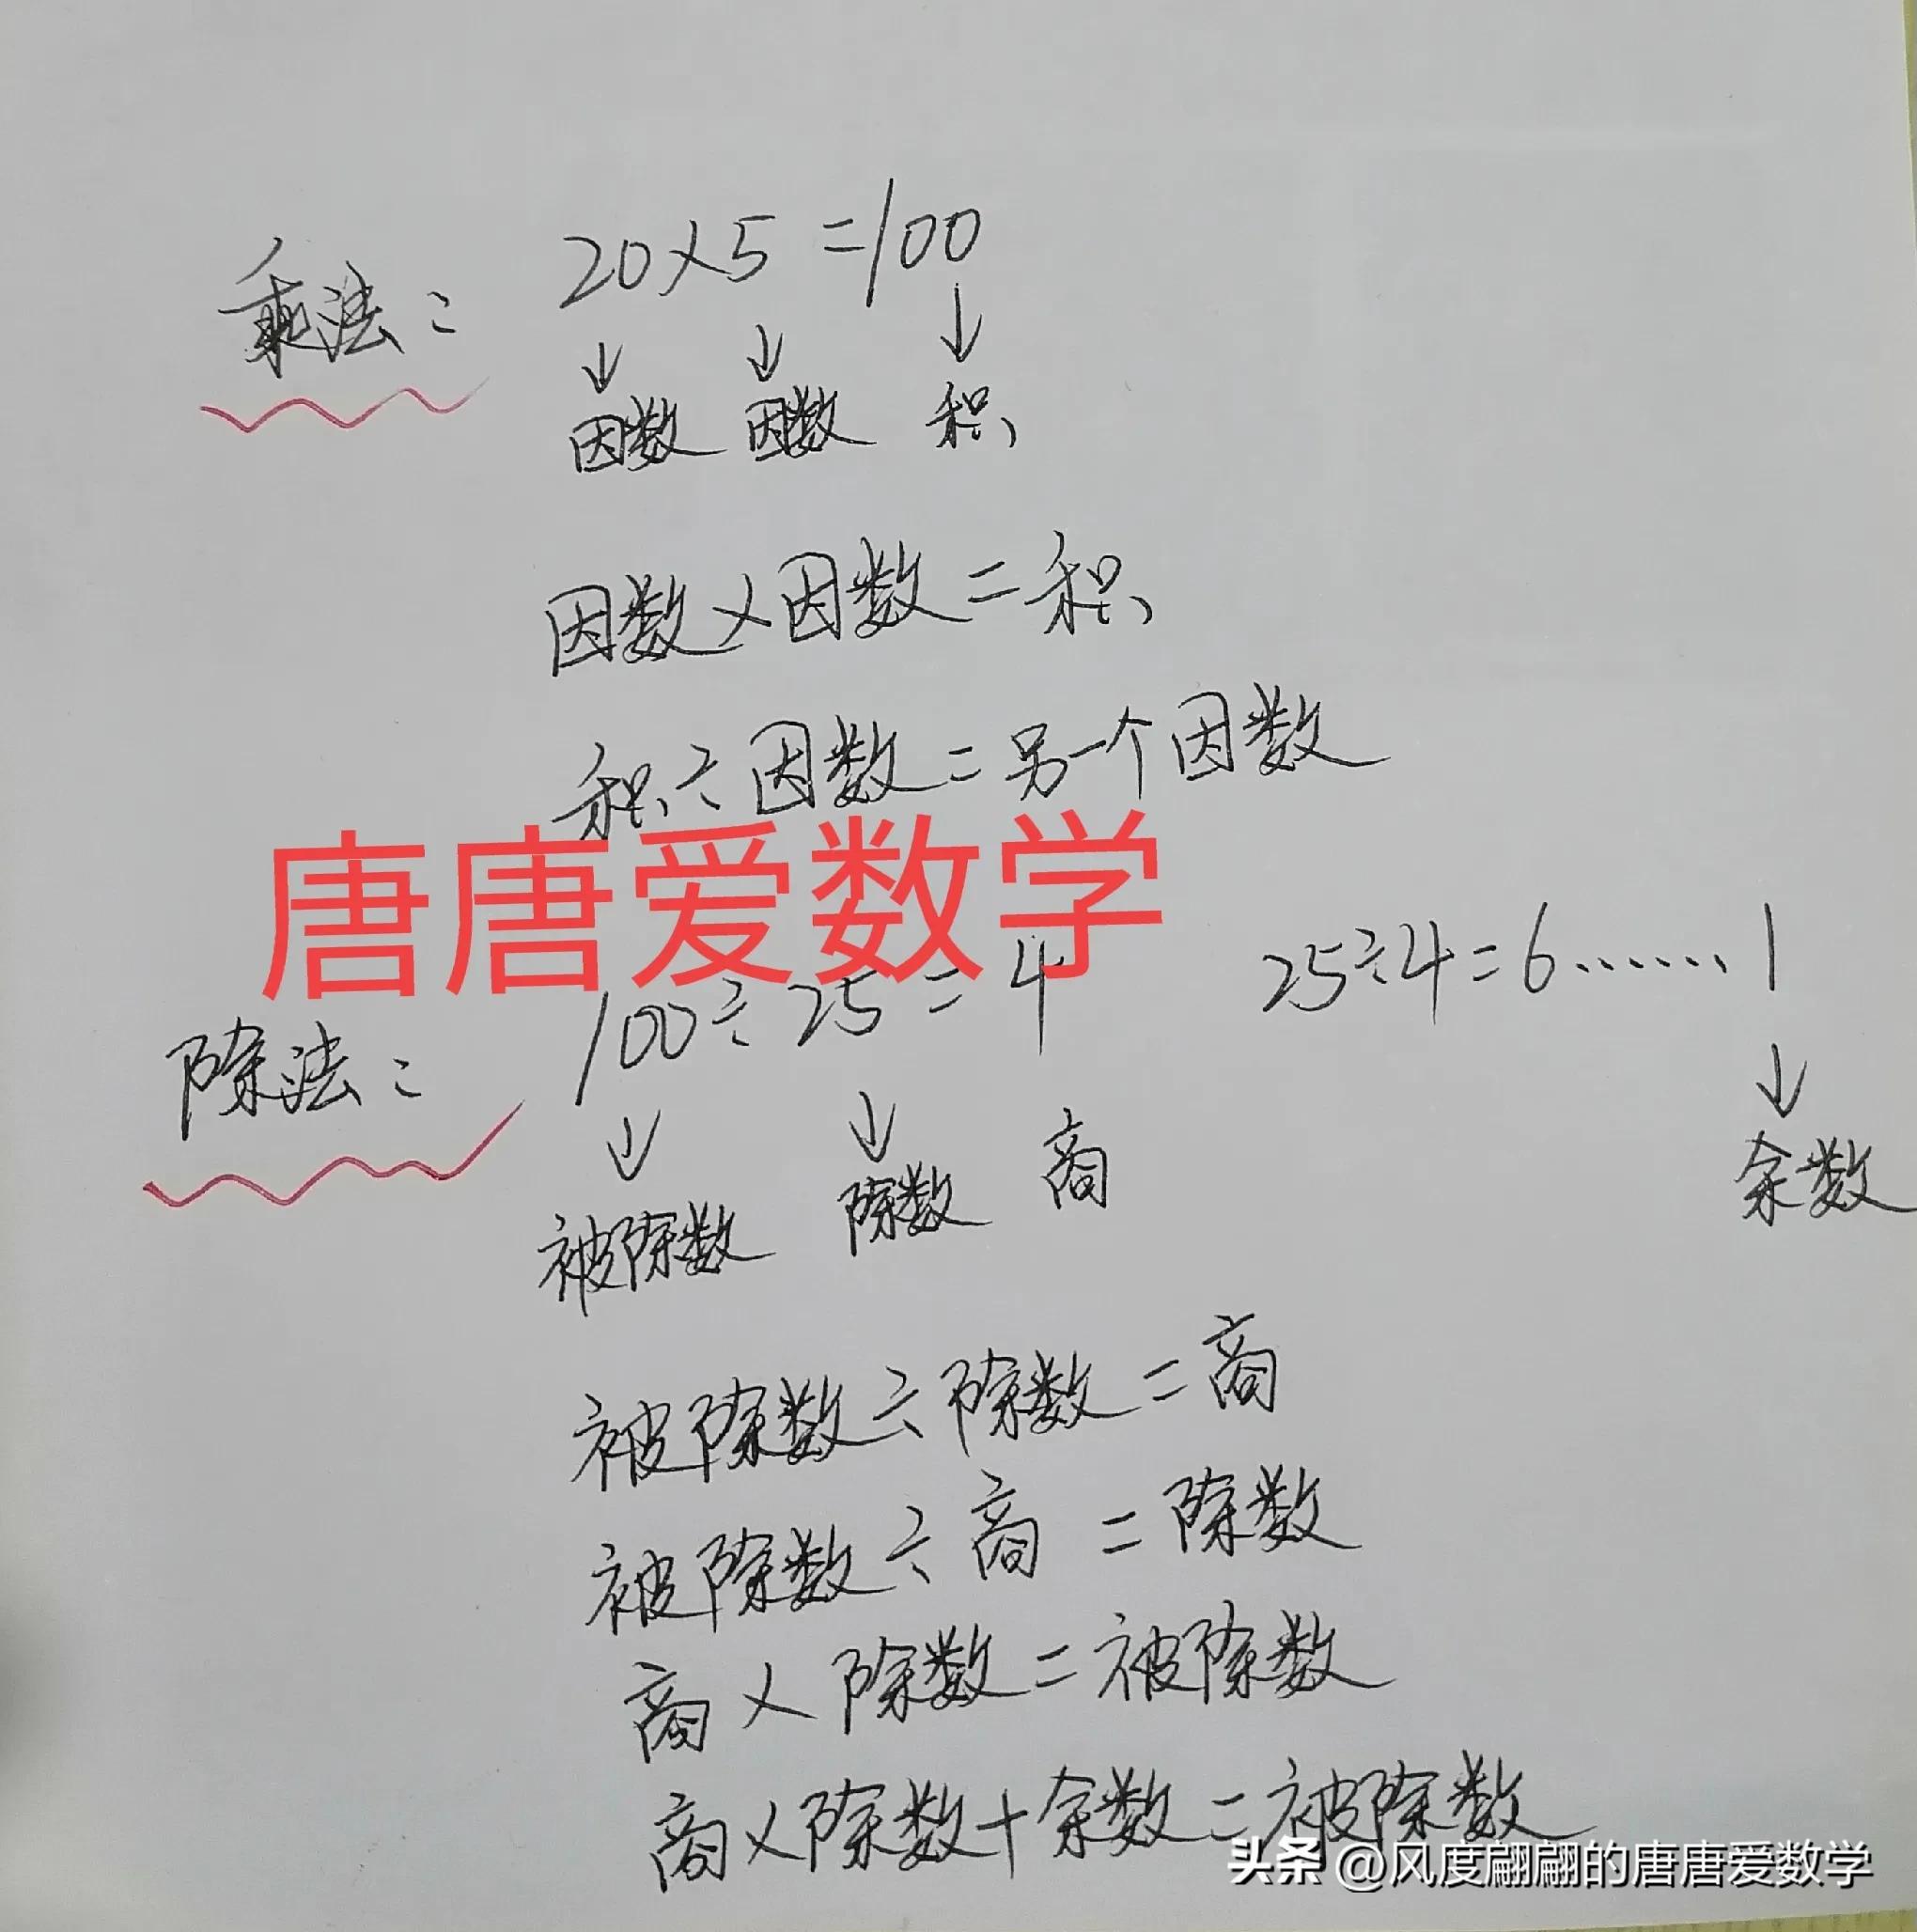 乘法: 20×5=100
↓ ↓ ↓
因数 因数 积
因数×因数=积
积÷因数=另一个因数
唐唐爱数学
除法: 100÷25=4 25÷4=6……1
↓ ↓ ↓
被除数 除数 商 余数
被除数÷除数=商
被除数÷商=除数
商×除数=被除数
商×除数+余数=被除数
头条 @风度翩翩的唐唐爱数学